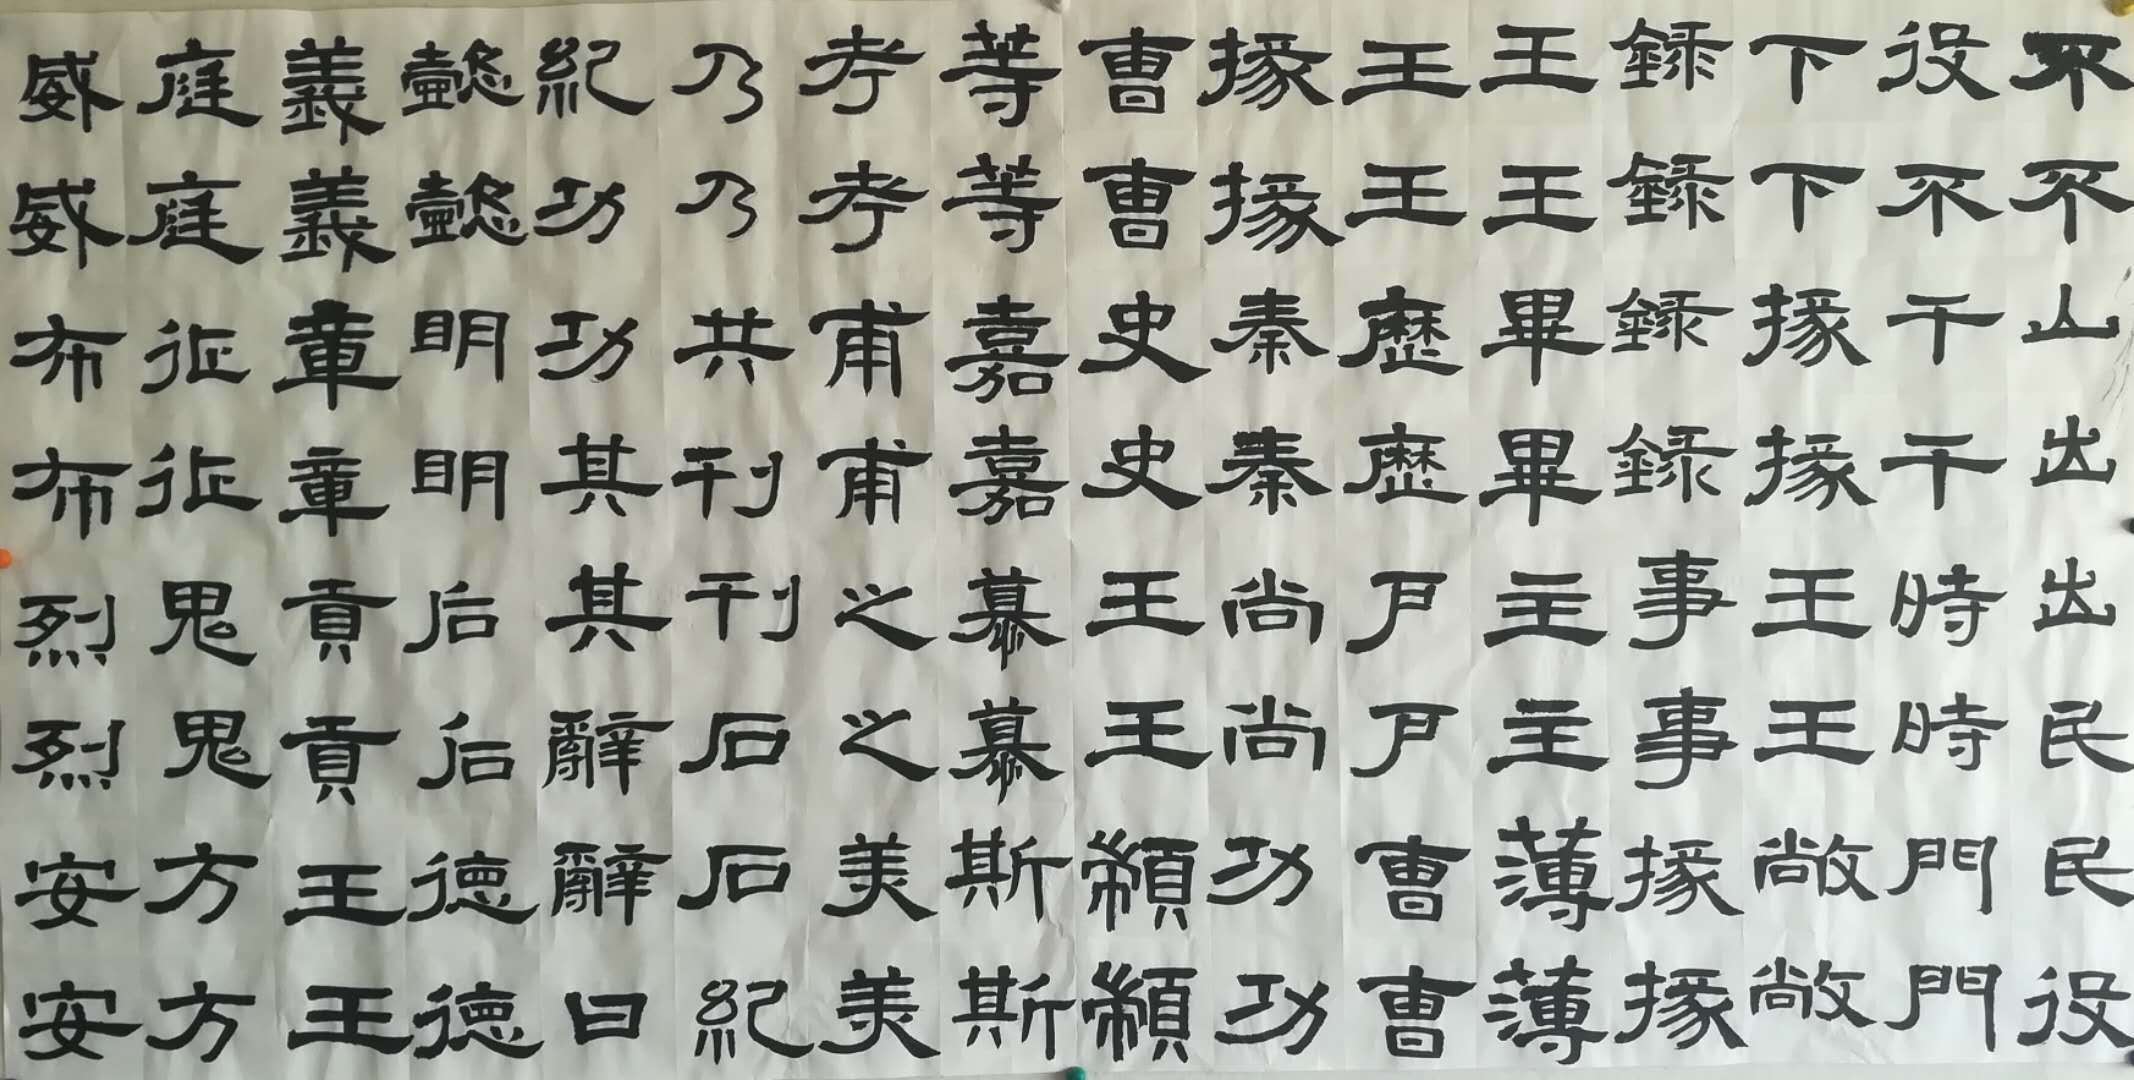 不不山出出民民役
役不干干時時門門
下下掾掾王王敞敞
録録録録事事掾掾
王王畢畢主主薄薄
王王歷歷戶戶曹曹
掾掾秦秦尚尚功功
曹曹史史王王顓顓
等等嘉嘉慕慕斯斯
考考甫甫之之美美
乃乃共刊刊石石紀
紀功功其其辭辭曰
懿懿明明后后德德
義義章章貢貢王王
庭庭征征鬼鬼方方
威威布布烈烈安安